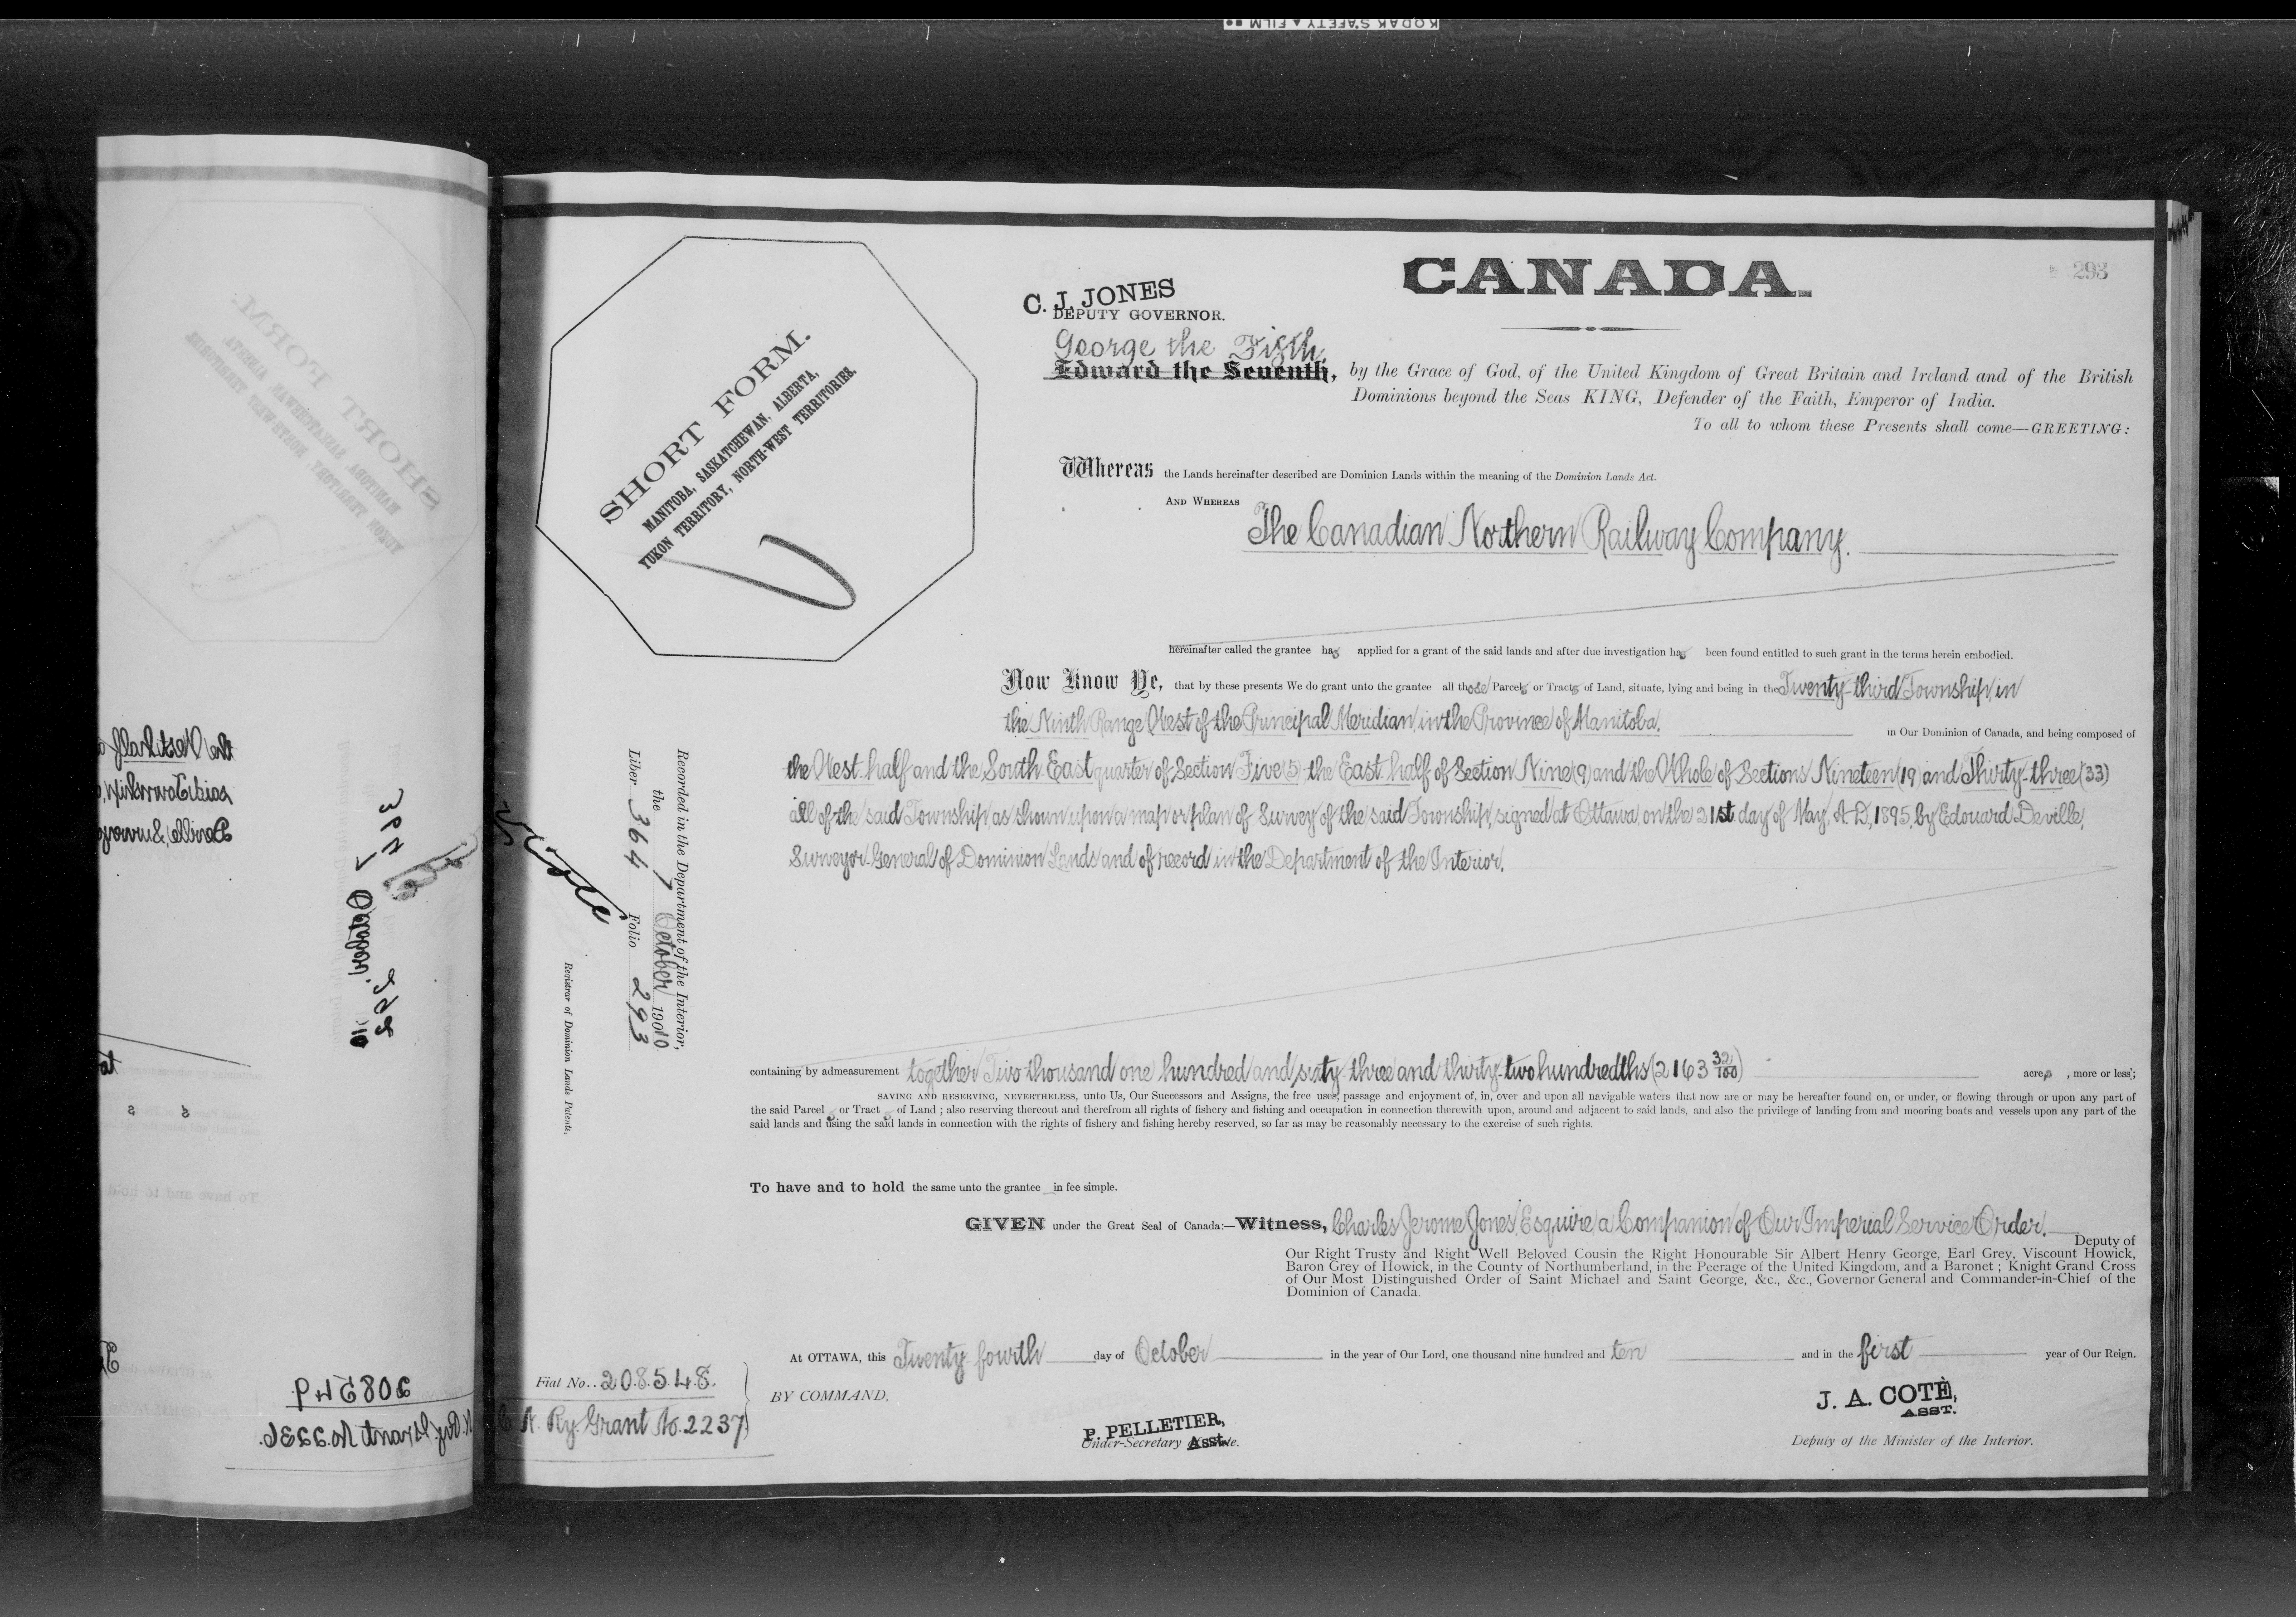 KODAK SAFETY ▲ FILM
293
CANADA.
C. J. JONES
DEPUTY GOVERNOR.
George the Fifth,
Edward the Seventh, by the Grace of God, of the United Kingdom of Great Britain and Ireland and of the British
Dominions beyond the Seas KING, Defender of the Faith, Emperor of India.
To all to whom these Presents shall come—GREETING:
SHORT FORM.
MANITOBA, SASKATCHEWAN, ALBERTA,
YUKON TERRITORY, NORTH-WEST TERRITORIES.
Whereas the Lands hereinafter described are Dominion Lands within the meaning of the Dominion Lands Act.
AND WHEREAS The Canadian Northern Railway Company.
hereinafter called the grantee has applied for a grant of the said lands and after due investigation has been found entitled to such grant in the terms herein embodied.
Now Know Ye, that by these presents We do grant unto the grantee all those Parcels or Tracts of Land, situate, lying and being in the Twenty-third Township in
the Ninth Range West of the Principal Meridian, in the Province of Manitoba. in Our Dominion of Canada, and being composed of
the West half and the South East quarter of Section Five (5) the East half of Section Nine (9) and the Whole of Sections Nineteen (19) and Thirty-three (33)
all of the said Township, as shown upon a map or plan of Survey of the said Township, signed at Ottawa, on the 31st day of May, A.D., 1895, by Edouard Deville,
Surveyor General of Dominion Lands and of record in the Department of the Interior.
containing by admeasurement together Two thousand one hundred and sixty-three and thirty-two hundredths (2163 32/100) acres, more or less;
SAVING AND RESERVING, NEVERTHELESS, unto Us, Our Successors and Assigns, the free uses, passage and enjoyment of, in, over and upon all navigable waters that now are or may be hereafter found on, or under, or flowing through or upon any part of
the said Parcels or Tracts of Land; also reserving thereout and therefrom all rights of fishery and fishing and occupation in connection therewith upon, around and adjacent to said lands, and also the privilege of landing from and mooring boats and vessels upon any part of the
said lands and using the said lands in connection with the rights of fishery and fishing hereby reserved, so far as may be reasonably necessary to the exercise of such rights.
To have and to hold the same unto the grantee in fee simple.
GIVEN under the Great Seal of Canada:—Witness, Charles Jerome Jones, Esquire, a Companion of Our Imperial Service Order.
Deputy of
Our Right Trusty and Right Well Beloved Cousin the Right Honourable Sir Albert Henry George, Earl Grey, Viscount Howick,
Baron Grey of Howick, in the County of Northumberland, in the Peerage of the United Kingdom, and a Baronet; Knight Grand Cross
of Our Most Distinguished Order of Saint Michael and Saint George, &c., &c., Governor General and Commander-in-Chief of the
Dominion of Canada.
At OTTAWA, this Twenty fourth day of October in the year of Our Lord, one thousand nine hundred and ten and in the first year of Our Reign.
BY COMMAND,
P. PELLETIER,
Under-Secretary Asst.
J. A. COTÉ,
ASST.
Deputy of the Minister of the Interior.
Fiat No. 208548.
N. Ry. Grant No. 2237
Recorded in the Department of the Interior,
the 7 October 1910
Liber 364 Folio 293
Registrar of Dominion Lands Patents.